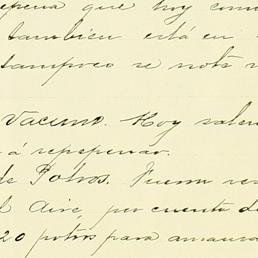 repena que hoy com
tambien está en
tampoco se nota
Vacuno. Hoy salen
á repepenar.
de Potros. Fueron
l Aire, por cuenta de
20 potros para amansa